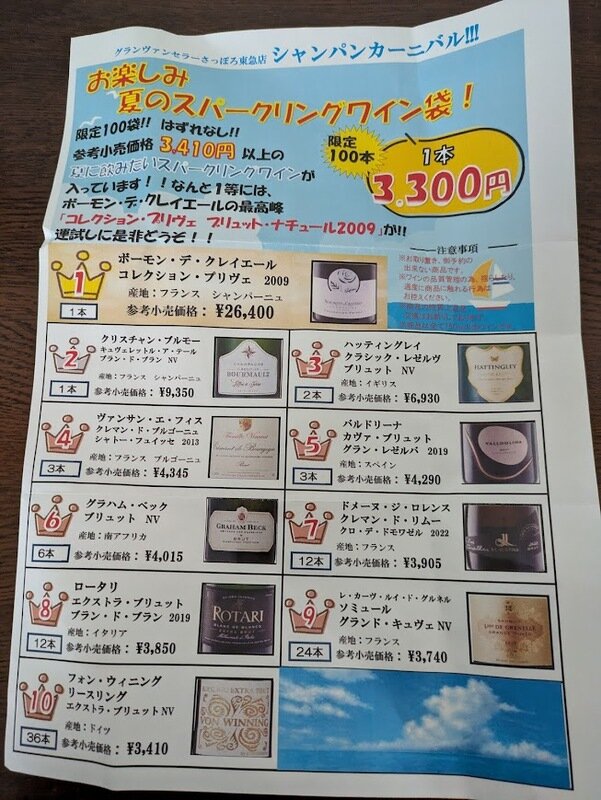 グランヴァンセラーさっぽろ東急店 シャンパンカーニバル!!!
お楽しみ
夏のスパークリングワイン袋！
限定100袋!! はずれなし!!
参考小売価格 3,410円 以上の
夏に飲みたいスパークリングワインが
入っています！！なんと1等には、
ボーモン・デ・クレイエールの最高峰
「コレクション・プリヴェ ブリュット・ナチュール2009」が!!
運試しに是非どうぞ！！
限定
100本
1本
3,300円
注意事項
※お取り置き、御予約の
出来ない商品です。
1
1本
ボーモン・デ・クレイエール
コレクション・プリヴェ 2009
産地：フランス シャンパーニュ
参考小売価格：¥26,400
2
1本
クリスチャン・ブルモー
キュヴェレットル・ア・テール
ブラン・ド・ブラン NV
産地：フランス シャンパーニュ
参考小売価格：¥9,350
BOURMAULT
3
2本
ハッティングレイ
クラシック・レゼルヴ
ブリュット NV
産地：イギリス
参考小売価格：¥6,930
HATTINGLEY
4
3本
ヴァンサン・エ・フィス
クレマン・ド・ブルゴーニュ
シャトー・フュイッセ 2013
産地：フランス ブルゴーニュ
参考小売価格：¥4,345
5
3本
バルドリーナ
カヴァ・ブリュット
グラン・レゼルバ 2019
産地：スペイン
参考小売価格：¥4,290
VALLDOLINA
6
6本
グラハム・ベック
ブリュット NV
産地：南アフリカ
参考小売価格：¥4,015
GRAHAM BECK
BRUT
7
12本
ドメーヌ・ジ・ロレンス
クレマン・ド・リムー
クロ・デ・ドモワゼル 2022
産地：フランス
参考小売価格：¥3,905
8
12本
ロータリ
エクストラ・ブリュット
ブラン・ド・ブラン 2019
産地：イタリア
参考小売価格：¥3,850
ROTARI
BLANC DE BLANCS
9
24本
レ・カーヴ・ルイ・ド・グルネル
ソミュール
グランド・キュヴェ NV
産地：フランス
参考小売価格：¥3,740
DE GRENELLE
10
36本
フォン・ウィニング
リースリング
エクストラ・ブリュット NV
産地：ドイツ
参考小売価格：¥3,410
VON WINNING